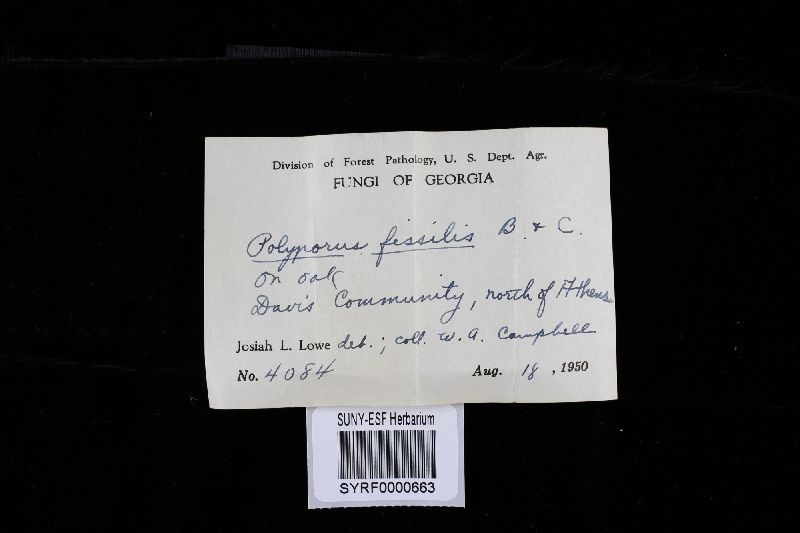 Division of Forest Pathology, U. S. Dept. Agr.
FUNGI OF GEORGIA
Polyporus fissilis B & C.
on oak
Davis Community, north of Athens
Josiah L. Lowe det.; coll. W. A. Campbell
No. 4084 Aug. 18, 1950
SUNY-ESF Herbarium
SYRF0000663